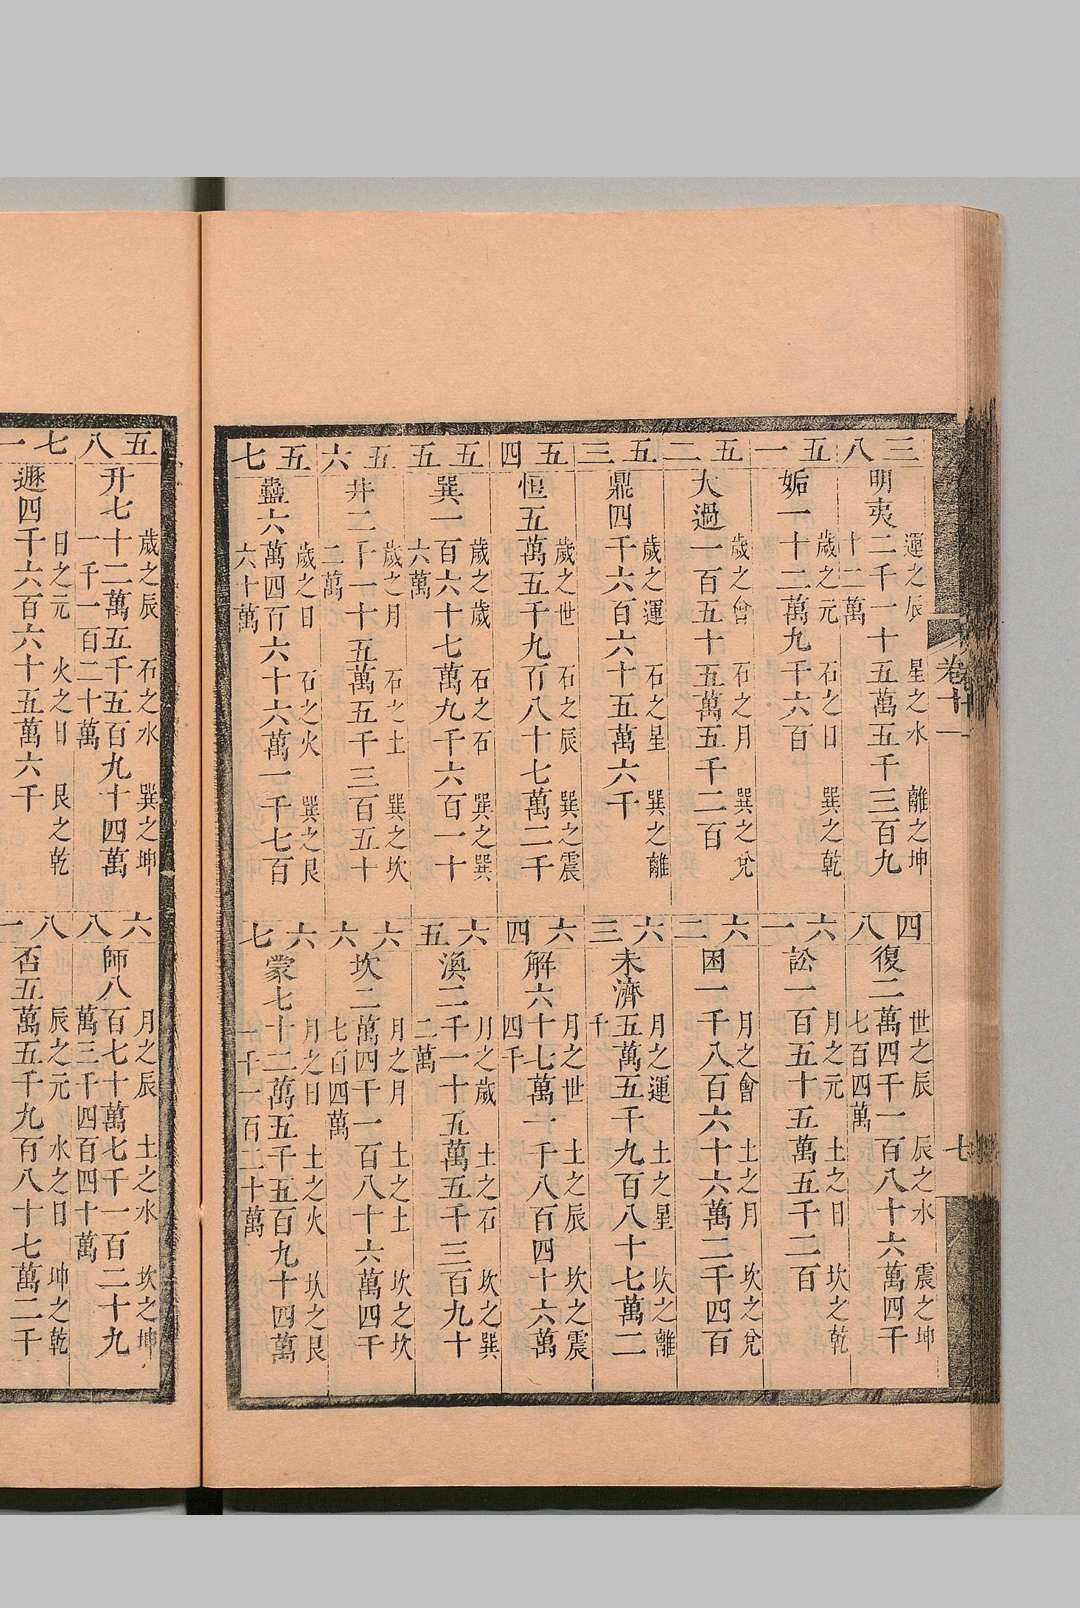 三八
運之辰　星之水　離之坤
明夷二千一十五萬五千三百九
十二萬
五一
歲之元　石之日　巽之乾
姤一十二萬九千六百
五二
歲之會　石之月　巽之兌
大過一百五十五萬五千二百
五三
歲之運　石之星　巽之離
鼎四千六百六十五萬六千
五四
歲之世　石之辰　巽之震
恒五萬五千九百八十七萬二千
五五
歲之歲　石之石　巽之巽
巽一百六十七萬九千六百一十
六萬
五六
歲之月　石之土　巽之坎
井二千一十五萬五千三百五十
二萬
五七
歲之日　石之火　巽之艮
蠱六萬四百六十六萬一千七百
六十萬
四八
世之辰　辰之水　震之坤
復二萬四千一百八十六萬四千
七百四萬
六一
月之元　土之日　坎之乾
訟一百五十五萬五千二百
六二
月之會　土之月　坎之兌
困一千八百六十六萬二千四百
六三
月之運　土之星　坎之離
未濟五萬五千九百八十七萬二
千
六四
月之世　土之辰　坎之震
解六十七萬一千八百四十六萬
四千
六五
月之歲　土之石　坎之巽
渙二千一十五萬五千三百九十
二萬
六六
月之月　土之土　坎之坎
坎二萬四千一百八十六萬四千
七百四萬
六七
月之日　土之火　坎之艮
蒙七十二萬五千五百九十四萬
一千一百二十萬
卷十一
七
五八
歲之辰　石之水　巽之坤
升七十二萬五千五百九十四萬
一千一百二十萬
七一
日之元　火之日　艮之乾
遯四千六百六十五萬六千
六八
月之辰　土之水　坎之坤
師八百七十萬七千一百二十九
萬三千四百四十萬
八一
辰之元　水之日　坤之乾
否五萬五千九百八十七萬二千